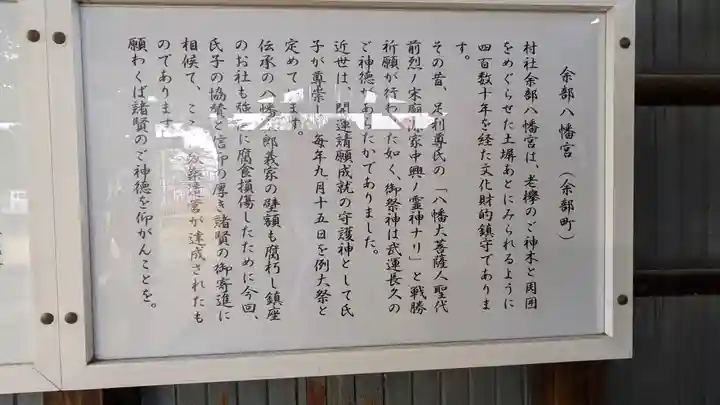 余部八幡宮(余部町)
村社余部八幡宮は、老欅のご神木と周囲
をめぐらせた土塀あとにみられるように
四百数十年を経た文化財的鎮守でありま
す。
その昔、足利尊氏の「八幡大菩薩人聖代
前烈ノ宋廟源家中興ノ霊神ナリ」と戦勝
祈願が行われた如く、御祭神は武運長久の
ご神徳があらたかでありました。
近世は、開運請願成就の守護神として氏
子が尊崇し、毎年九月十五日を例大祭と
定めています。
伝承の八幡太郎義家の壁額も腐朽し鎮座
のお社も 腐食損傷したために今回、
氏子の協賛と信仰の厚き諸賢の御寄進に
相俟て、ここ 改築造営が達成されたも
のであります
願わくば諸賢のご神徳を仰がんことを。